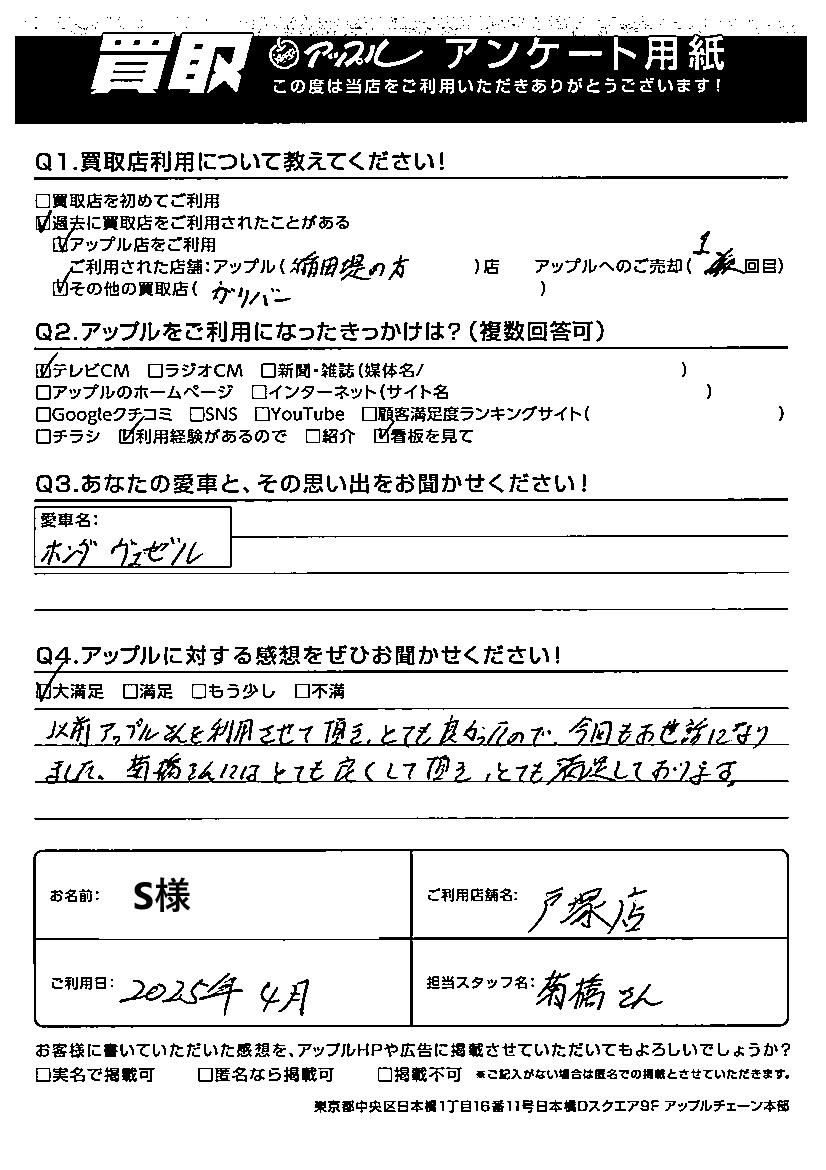 買取 アップル アンケート用紙
この度は当店をご利用いただきありがとうございます!
Q1.買取店利用について教えてください!
□買取店を初めてご利用
☑過去に買取店をご利用されたことがある
☑アップル店をご利用
ご利用された店舗:アップル(稲田堤の方)店 アップルへのご売却(1回目)
☑その他の買取店(ガリバー)
Q2.アップルをご利用になったきっかけは?(複数回答可)
☑テレビCM □ラジオCM □新聞・雑誌(媒体名/ )
□アップルのホームページ □インターネット(サイト名 )
□Googleクチコミ □SNS □YouTube □顧客満足度ランキングサイト( )
□チラシ ☑利用経験があるので □紹介 ☑看板を見て
Q3.あなたの愛車と、その思い出をお聞かせください!
愛車名:
ホンダ ヴェゼル
Q4.アップルに対する感想をぜひお聞かせください!
☑大満足 □満足 □もう少し □不満
以前アップルさんを利用させて頂き、とても良かったので、今回もお世話になり
ました。菊橋さんにはとても良くして頂き、とても満足しております。
お名前: S様 ご利用店舗名: 戸塚店
ご利用日: 2025年4月 担当スタッフ名: 菊橋さん
お客様に書いていただいた感想を、アップルHPや広告に掲載させていただいてもよろしいでしょうか?
□実名で掲載可 □匿名なら掲載可 □掲載不可 *ご記入がない場合は匿名での掲載とさせていただきます。
東京都中央区日本橋1丁目16番11号日本橋Dスクエア9F アップルチェーン本部